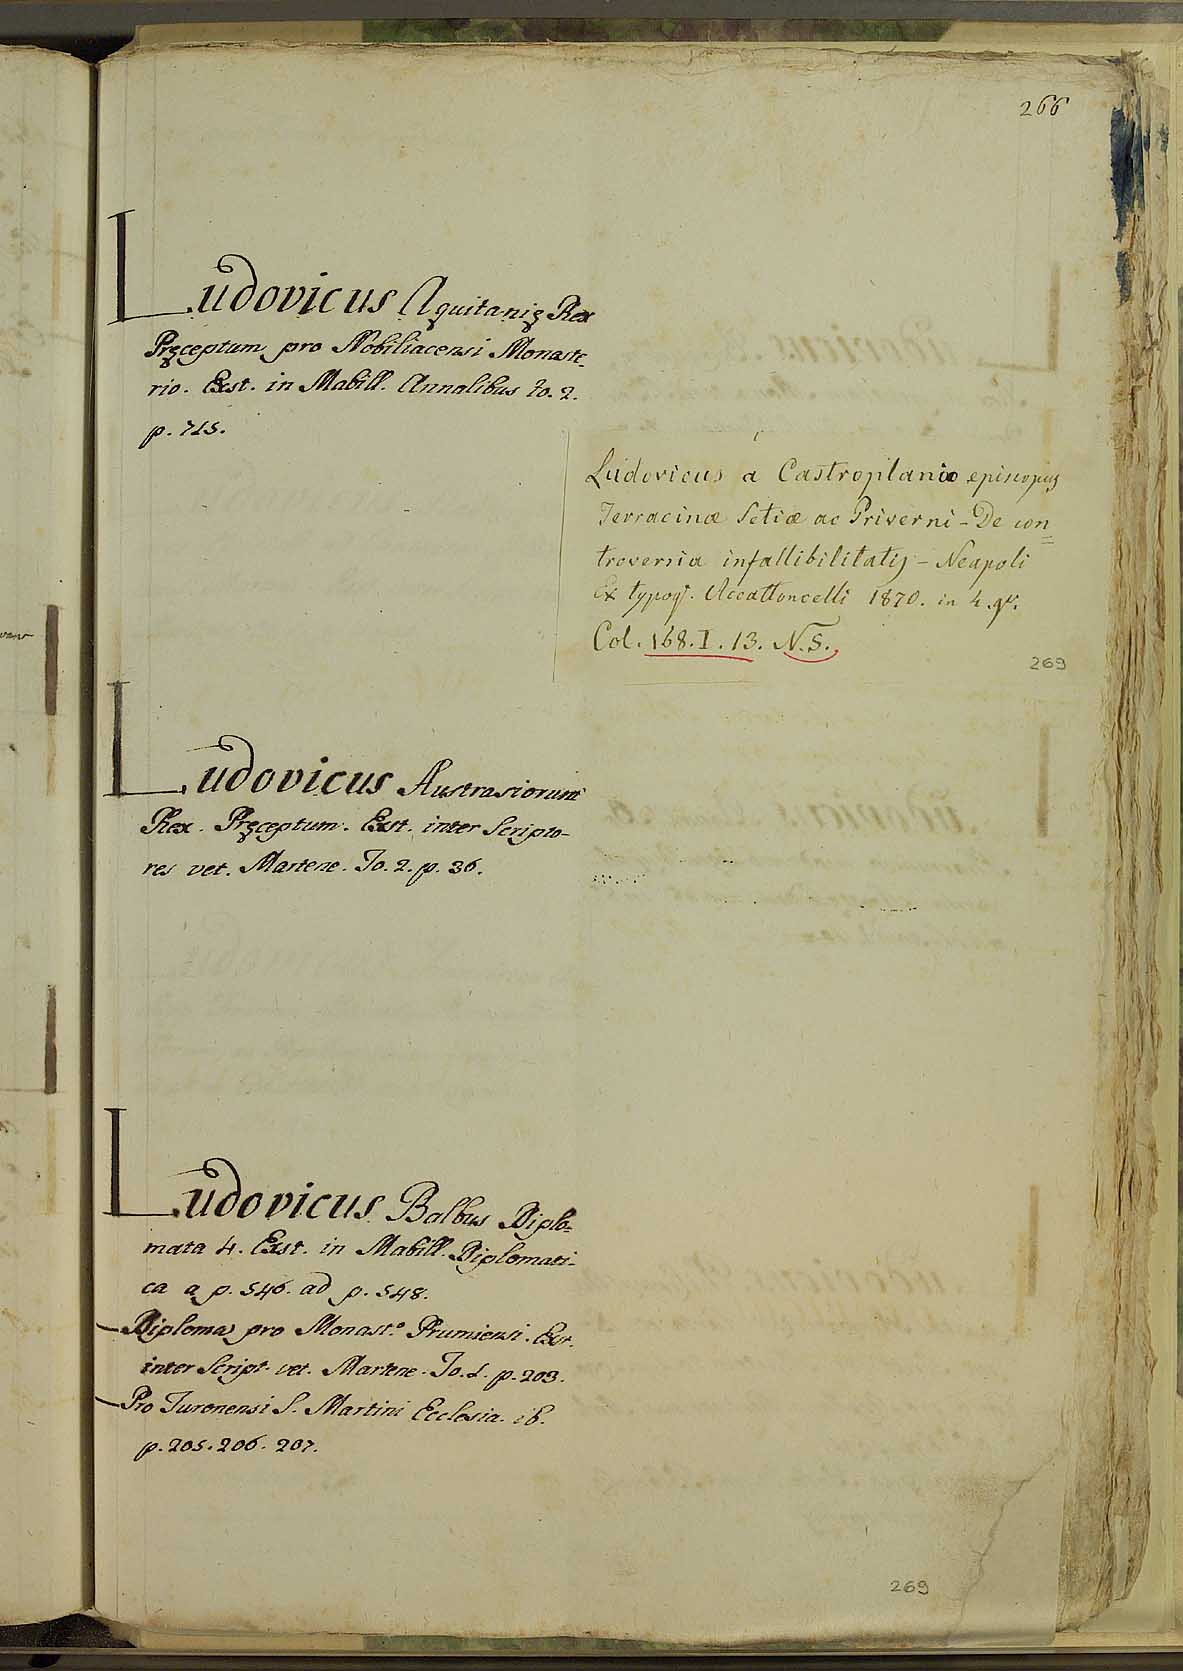 266
Ludovicus Aquitanię Rex
Pręceptum pro Nobiliacensi Monaste-
rio. Exst. in Mabill. Annalibus To. 2.
p. 715.
Ludovicus a Castroplanio episcopus
Terracinæ Setiæ ac Priverni - De con=
troversia infallibilitatis - Neapoli
Ex typog. Accattoncelli 1870. in 4. gr.
Col. 168. I. 13. N. S.
269
Ludovicus Austrasiorum
Rex. Pręceptum. Exst. inter Scripto-
res vet. Martene. To. 2. p. 36.
Ludovicus Balbus Diplo=
mata 4. Exst. in Mabill. Diplomati-
ca a p. 546. ad p. 548.
— Diploma pro Monast.o Prumiensi. Exst.
inter Script. vet. Martene. To. 1. p. 203.
— Pro Turonensi S. Martini Ecclesia. ib.
p. 205. 206. 207.
269